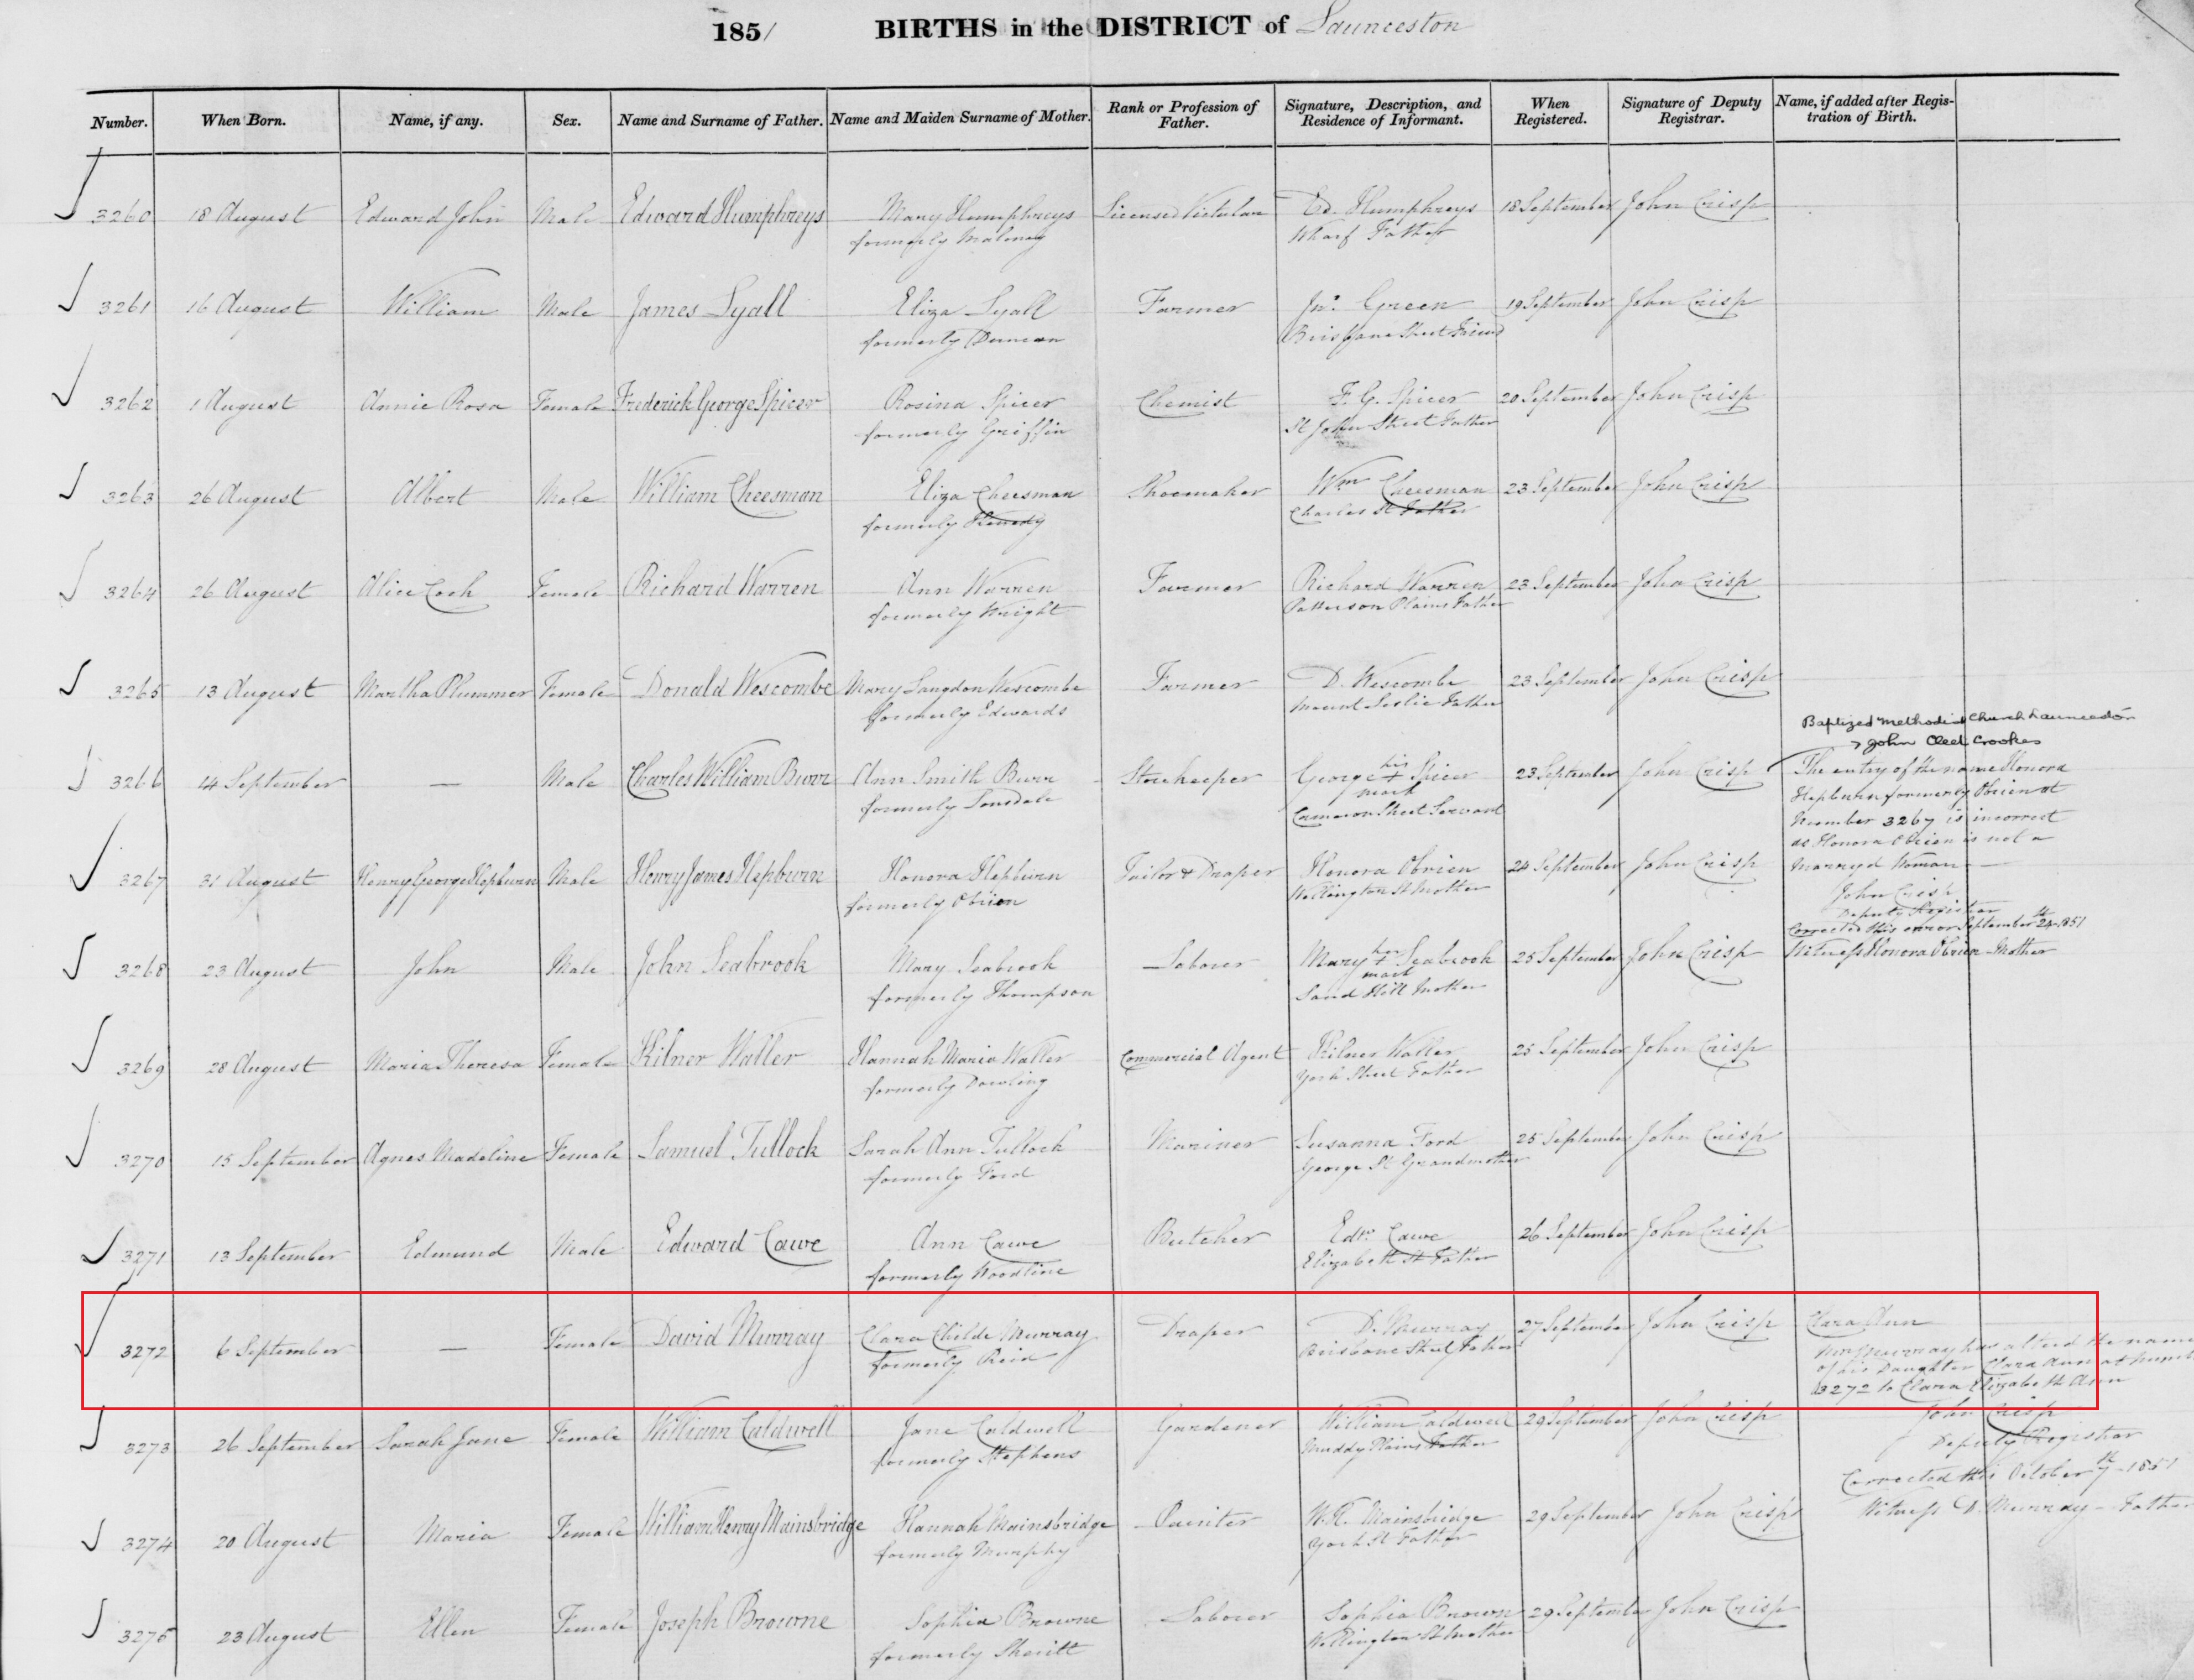 1851 BIRTHS in the DISTRICT of Launceston
Number. When Born. Name, if any. Sex. Name and Surname of Father. Name and Maiden Surname of Mother. Rank or Profession of Father. Signature, Description, and Residence of Informant. When Registered. Signature of Deputy Registrar. Name, if added after Registration of Birth.
3260 18 August Edward John Male Edward Humphreys Mary Humphreys Licensed Victular Ed. Humphreys 18 September John Crisp
formerly Maloney Wharf Father
3261 16 August William Male James Lyall Eliza Lyall Farmer Jno. Green 19 September John Crisp
formerly Duncan Brisbane Street Friend
3262 1 August Annie Rosa Female Frederick George Spicer Rosina Spicer Chemist F. G. Spicer 20 September John Crisp
formerly Griffin St John Street Father
3263 26 August Albert Male William Cheesman Eliza Cheesman Shoemaker Wm Cheesman 23 September John Crisp
formerly Charles St Father
3264 26 August Alice Female Richard Warren Ann Warren Farmer Richard Warren 23 September John Crisp
formerly Wright Patterson Plains Father
3265 13 August Martha Plummer Female Donald Wescombe Mary Langdon Wescombe Farmer D. Wescombe 23 September John Crisp
formerly Edwards Mount Leslie Father
Baptized Methodist Church Launceston
John Cleel Crookes
3266 14 September — Male Charles William Burr Ann Smith Burr Storekeeper George his + mark Spicer 23 September John Crisp
formerly Lonsdale Cameron Street Servant
The entry of the name Honora
Hepburn formerly Obrien at
number 3267 is incorrect
as Honora Obrien is not a
Marryd Woman —
John Crisp
Deputy Registrar
Corrected this error September 24th 1851
Witness Honora Obrien Mother
3267 31 August Henry George Hepburn Male Henry James Hepburn Honora Hepburn Tailor & Draper Honora Obrien 24 September John Crisp
formerly Obrien Wellington St Mother
3268 23 August John Male John Seabrook Mary Seabrook Laborer Mary her + mark Seabrook 25 September John Crisp
formerly Thompson Sand Hill Mother
3269 28 August Maria Theresa Female Kilner Waller Hannah Maria Waller Commercial Agent Kilner Waller 25 September John Crisp
formerly Dowling York Street Father
3270 15 September Agnes Madeline Female Samuel Tullock Sarah Ann Tullock Mariner Susanna Ford 25 September John Crisp
formerly Ford George St Grandmother
3271 13 September Edmund Male Edward Cawe Ann Cawe Butcher Edwd. Cawe 26 September John Crisp
formerly Woodline Elizabeth St Father
3272 6 September — Female David Murray Clara Childe Murray Draper D. Murray 27 September John Crisp Clara Ann
formerly Reid Brisbane Street Father
Murray has altered the name
of his Daughter Clara Ann at
3272 to Clara Elizabeth Ann
John Crisp
Deputy Registrar
Corrected this October 7th 1851
Witness D. Murray - Father
3273 26 September Sarah Jane Female William Caldwell Jane Caldwell Gardener William Caldwell 29 September John Crisp
formerly Stephens Muddy Plains Father
3274 20 August Maria Female William Henry Mainsbridge Hannah Mainsbridge Painter W. H. Mainsbridge 29 September John Crisp
formerly Murphy York St Father
3275 23 August Ellen Female Joseph Browne Sophia Browne Laborer Sophia Brown 29 September John Crisp
formerly Wellington St Mother